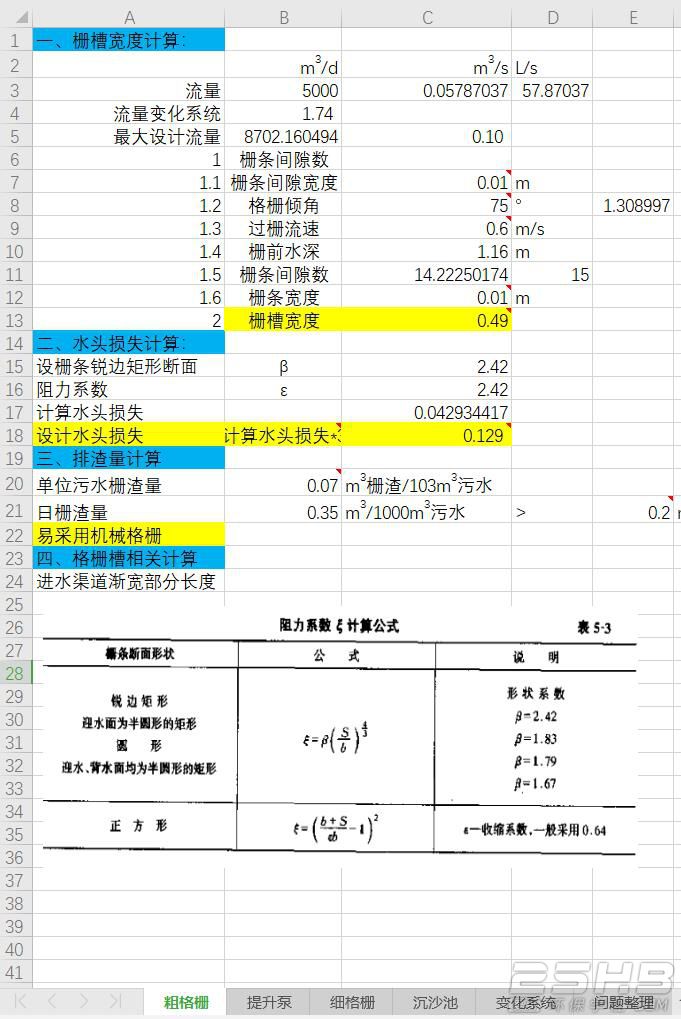 A B C D E
1 一、栅槽宽度计算:
2 m³/d m³/s L/s
3 流量 5000 0.05787037 57.87037
4 流量变化系统 1.74
5 最大设计流量 8702.160494 0.10
6 1 栅条间隙数
7 1.1 栅条间隙宽度 0.01 m
8 1.2 格栅倾角 75 ° 1.308997
9 1.3 过栅流速 0.6 m/s
10 1.4 栅前水深 1.16 m
11 1.5 栅条间隙数 14.22250174 15
12 1.6 栅条宽度 0.01 m
13 2 栅槽宽度 0.49
14 二、水头损失计算:
15 设栅条锐边矩形断面 β 2.42
16 阻力系数 ε 2.42
17 计算水头损失 0.042934417
18 设计水头损失 计算水头损失*3 0.129
19 三、排渣量计算
20 单位污水栅渣量 0.07 m³栅渣/103m³污水
21 日栅渣量 0.35 m³/1000m³污水 > 0.2
22 易采用机械格栅
23 四、格栅槽相关计算
24 进水渠道渐宽部分长度
25
26 阻力系数 ξ 计算公式 表 5-3
27 栅条断面形状 公 式 说 明
28
29 锐边矩形 形状系数
30 迎水面为半圆形的矩形 ξ=β(S/b)^4/3 β=2.42
31 圆 形 β=1.83
32 迎水、背水面均为半圆形的矩形 β=1.79
33 β=1.67
34
35 正 方 形 ξ=(b+S/εb -1)² ε—收缩系数,一般采用0.64
36
37
38
39
40
41
25HB
粗格栅 提升泵 细格栅 沉沙池 变化系统 问题整理